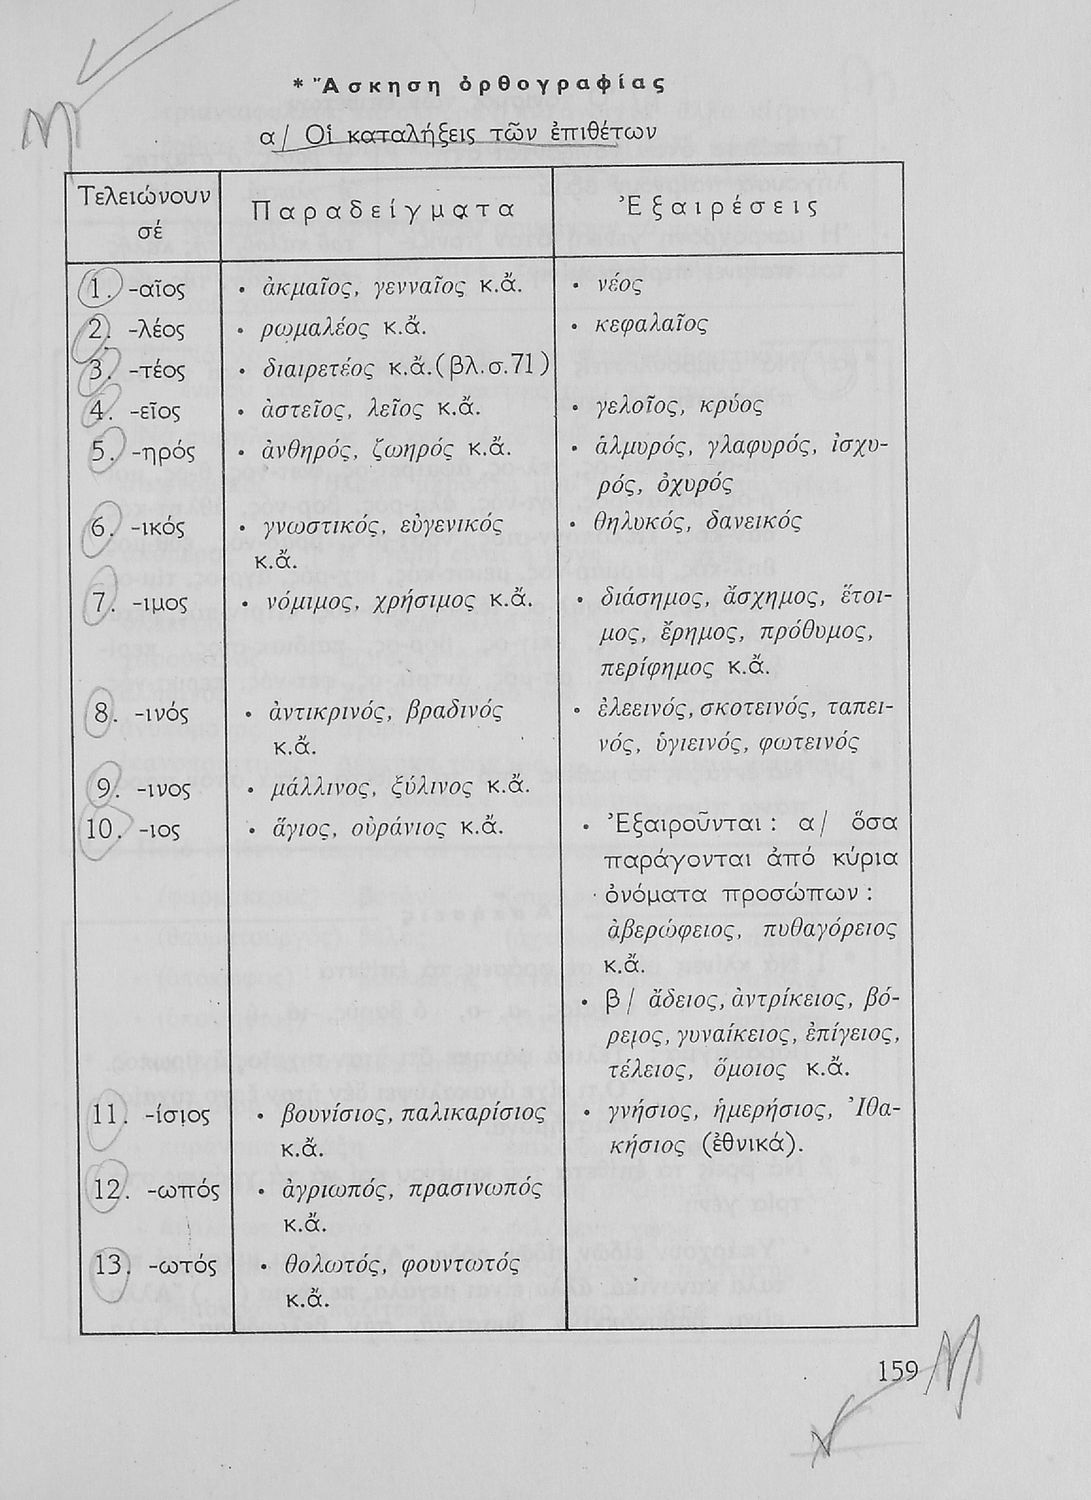 * Ἄσκηση ὀρθογραφίας
α/ Οἱ καταλήξεις τῶν ἐπιθέτων
Τελειώνουν σέ | Παραδείγματα | Ἐξαιρέσεις
1. -αῖος • ἀκμαῖος, γενναῖος κ.ἄ. • νέος
2. -λέος • ρωμαλέος κ.ἄ. • κεφαλαῖος
3. -τέος • διαιρετέος κ.ἄ. (βλ.σ.71)
4. -εῖος • ἀστεῖος, λεῖος κ.ἄ. • γελοῖος, κρύος
5. -ηρός • ἀνθηρός, ζωηρός κ.ἄ. • ἁλμυρός, γλαφυρός, ἰσχυ-
ρός, ὀχυρός
6. -ικός • γνωστικός, εὐγενικός • θηλυκός, δανεικός
κ.ἄ.
7. -ιμος • νόμιμος, χρήσιμος κ.ἄ. • διάσημος, ἄσχημος, ἕτοι-
μος, ἔρημος, πρόθυμος,
περίφημος κ.ἄ.
8. -ινός • ἀντικρινός, βραδινός • ἐλεεινός, σκοτεινός, ταπει-
κ.ἄ. νός, ὑγιεινός, φωτεινός
9. -ινος • μάλλινος, ξύλινος κ.ἄ.
10. -ιος • ἅγιος, οὐράνιος κ.ἄ. • Ἐξαιροῦνται : α/ ὅσα
παράγονται ἀπό κύρια
ὀνόματα προσώπων :
ἀβερώφειος, πυθαγόρειος
κ.ἄ.
• β/ ἄδειος, ἀντρίκειος, βό-
ρειος, γυναίκειος, ἐπίγειος,
τέλειος, ὅμοιος κ.ἄ.
11. -ίσιος • βουνίσιος, παλικαρίσιος • γνήσιος, ἡμερήσιος, Ἰθα-
κ.ἄ. κήσιος (ἐθνικά).
12. -ωπός • ἀγριωπός, πρασινωπός
κ.ἄ.
13. -ωτός • θολωτός, φουντωτός
κ.ἄ.
159